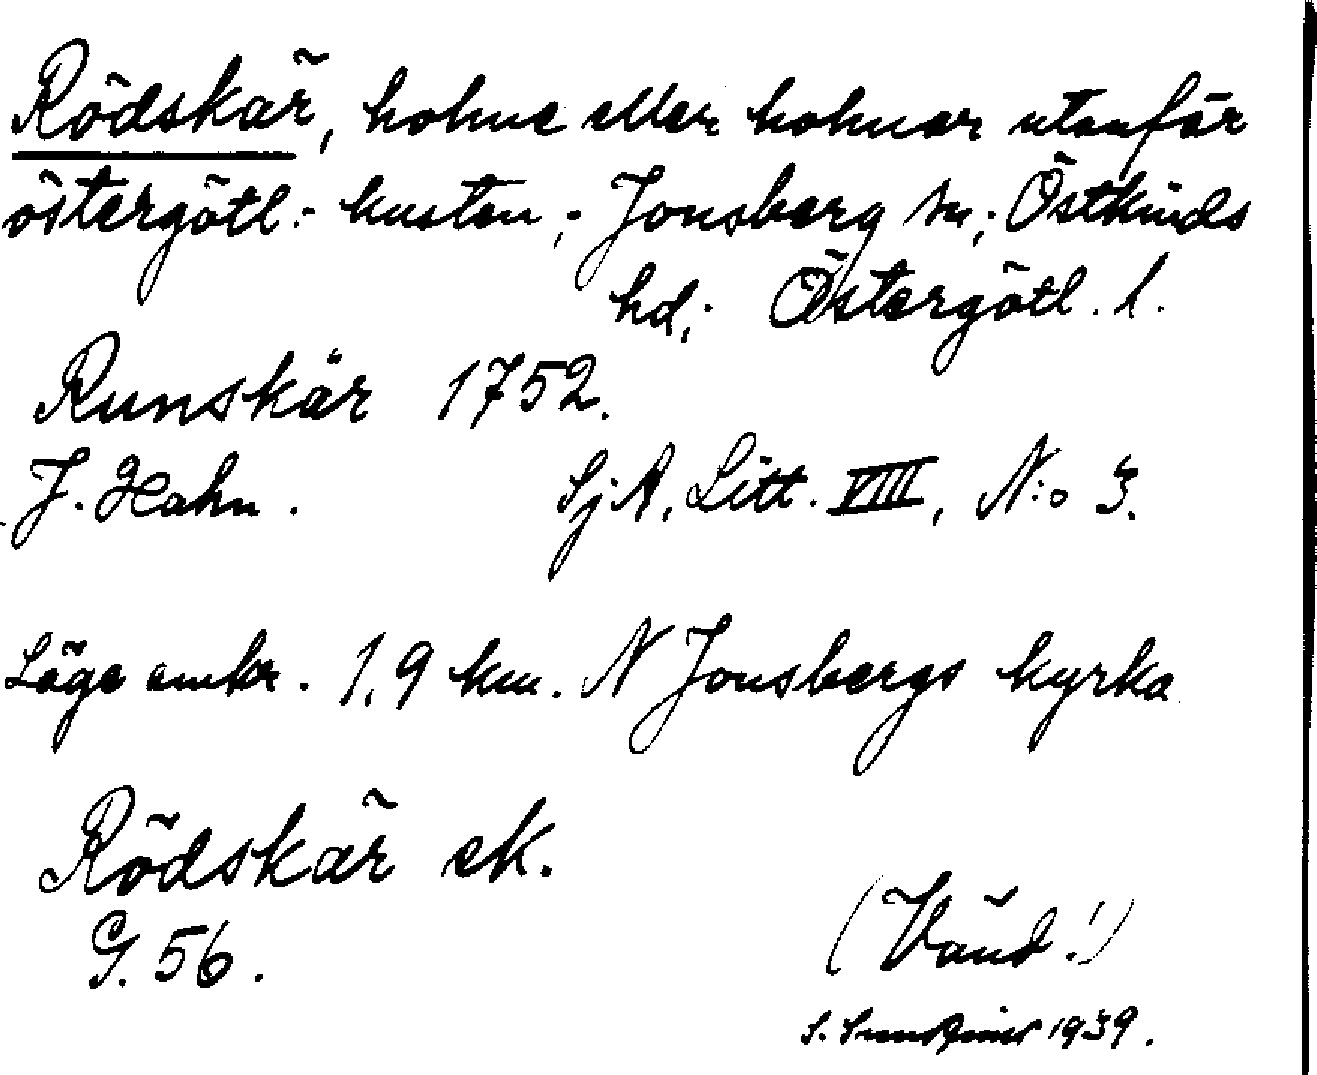 Rödskär, holme eller holmar utanför
östergötl:- kusten; Jonsberg sn; Östkinds
hd; Östergötl. l.
Runskär 1752.
J. Hahn. Sj.A. Litt. VIII, N:o 3.
Läge omkr. 1,9 km. N Jonsbergs kyrka
Rödskär ek.
G. 56.
(Vänd!)
S. 1939.